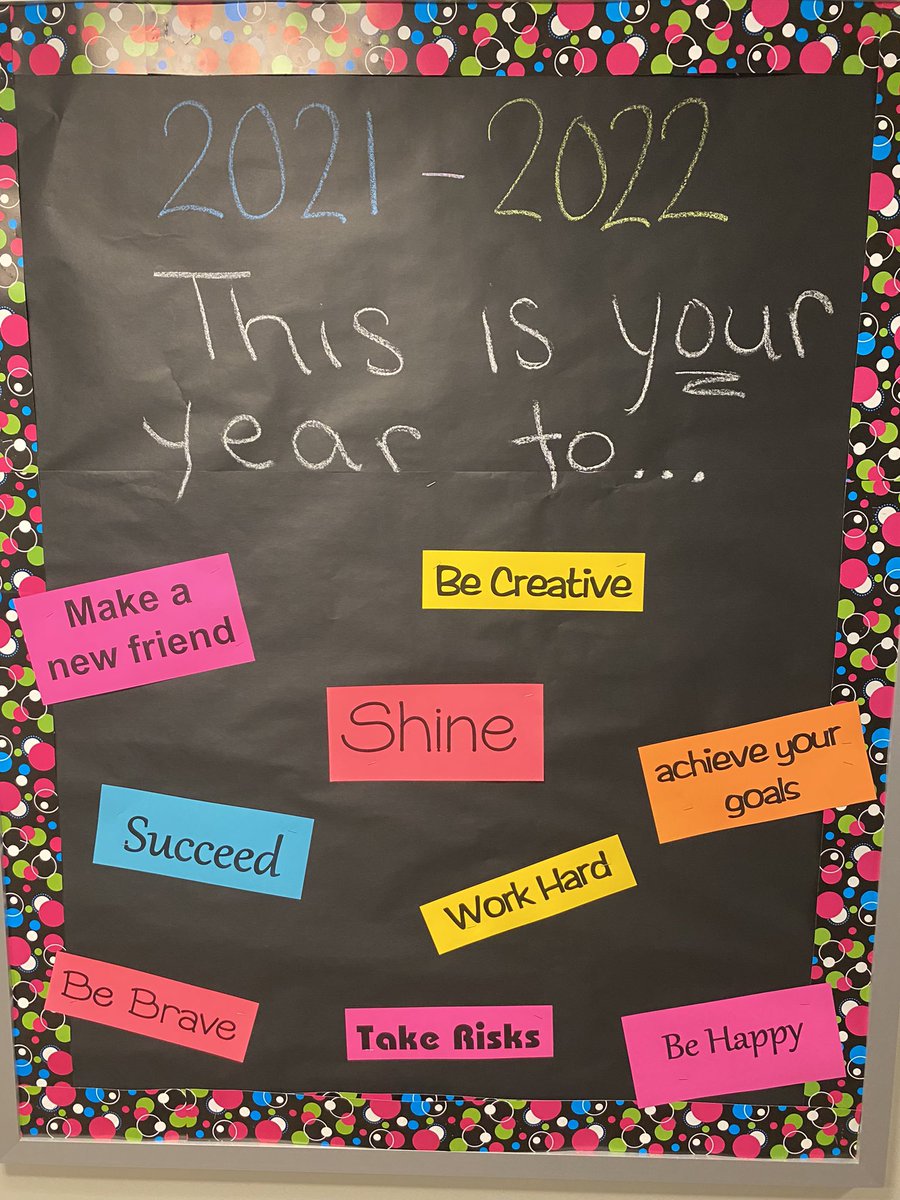 2021 - 2022
This is your
year to...
Make a
new friend
Be Creative
Shine
achieve your
goals
Succeed
Work Hard
Be Brave
Take Risks
Be Happy